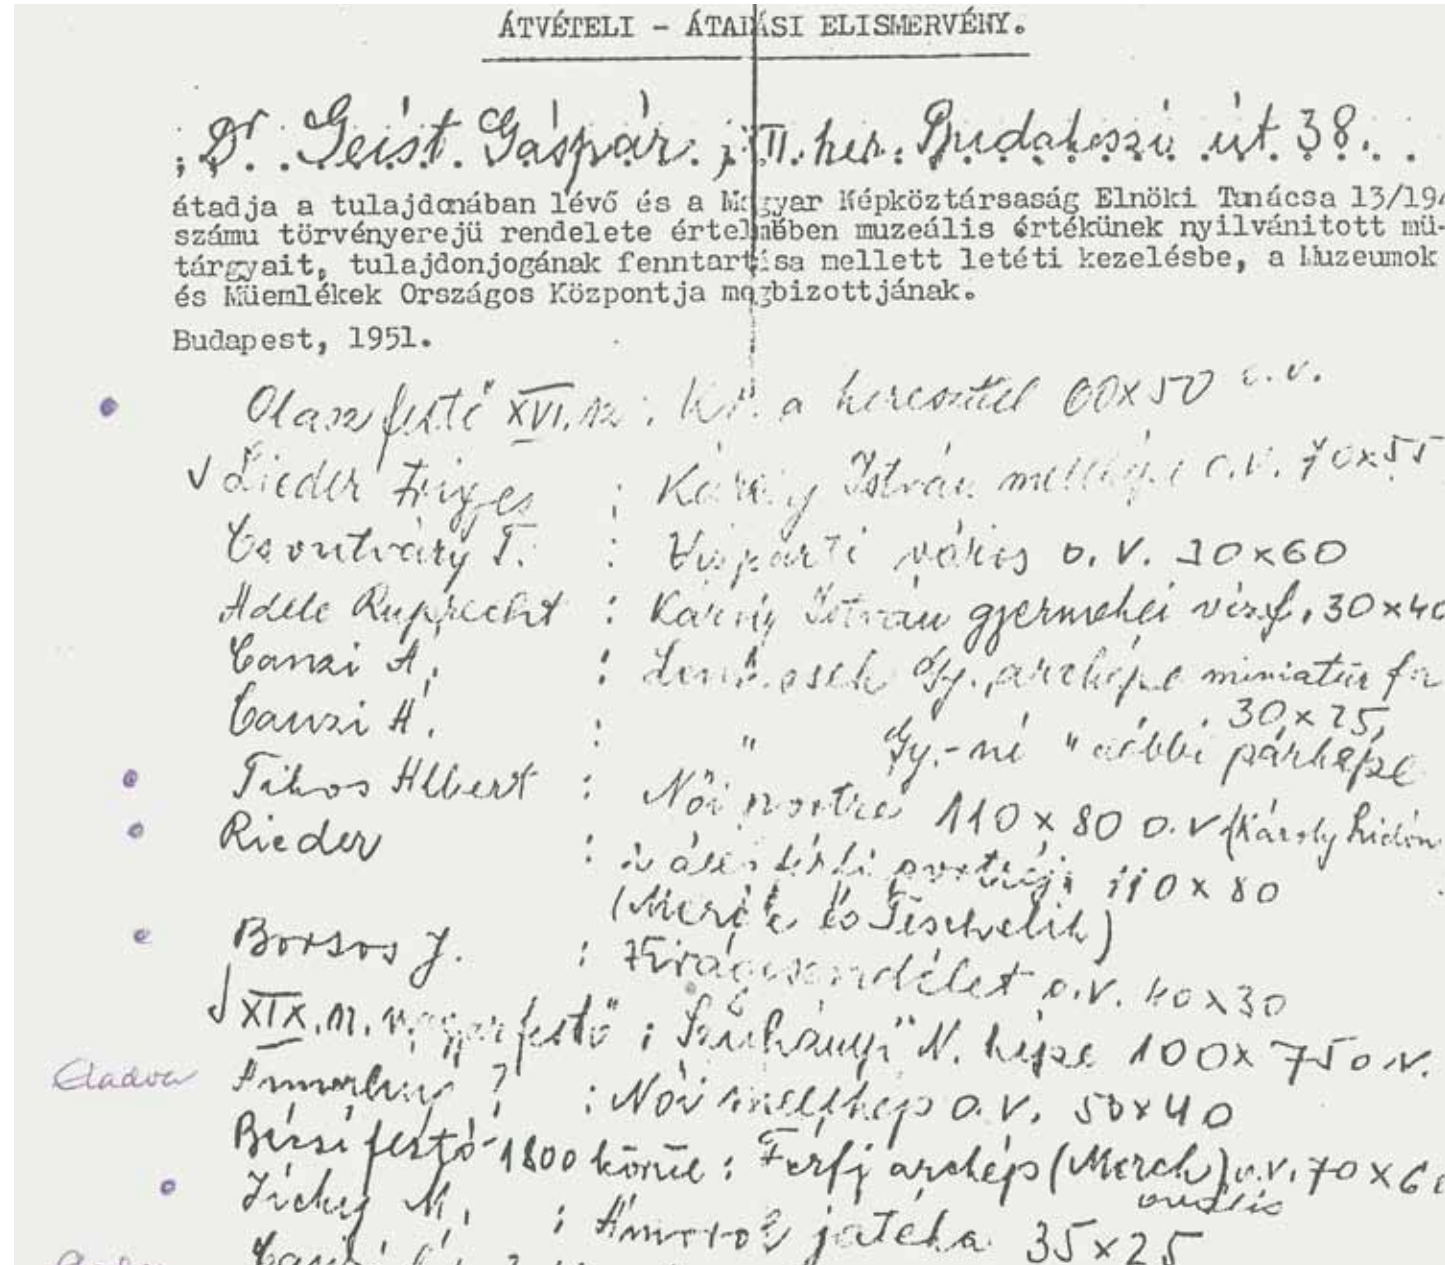 ÁTVÉTELI - ÁTADÁSI ELISMERVÉNY.
Dr. Geist Gáspár. II. ker. Budakeszi út 38.
átadja a tulajdonában lévő és a Magyar Népköztársaság Elnöki Tanácsa 13/194
számu törvényerejü rendelete értelmében muzeális értékünek nyilvánitott mü-
tárgyait, tulajdonjogának fenntartása mellett letéti kezelésbe, a Muzeumok
és Müemlékek Országos Központja megbizottjának.
Budapest, 1951.
Olasz festő XVI. sz. : Kr. a kereszttel 60x50 o.v.
Lieder Frigyes : Károly István mellképe o.v. 70x55
Csontváry T. : város o.V. 60
Adele Ruprecht : Károly István gyermekei vízf. 30x40
Canzi A. : Gy. arcképe miniatür
30x25,
Canzi A. : " Gy.-né " előbbi párképe
Tikos Albert : Női portré 110x80 o.v (Károly hidon
Rieder : portréja 110x80
(
Borsos J. : Virágcsendélet o.v. 40x30
XIX. sz. magyar festő : N. képe 100x75 o.v.
Eladva ? : Női mellkép o.v. 50x40
Bécsi festő 1800 körül : Férfi arckép (Merch) o.v. 70x6
ovális
Zichy M. : Ámorok játéka 35x25